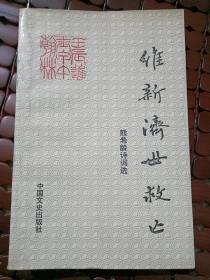 维新济世救亡
熊希龄诗词选
中国文史出版社